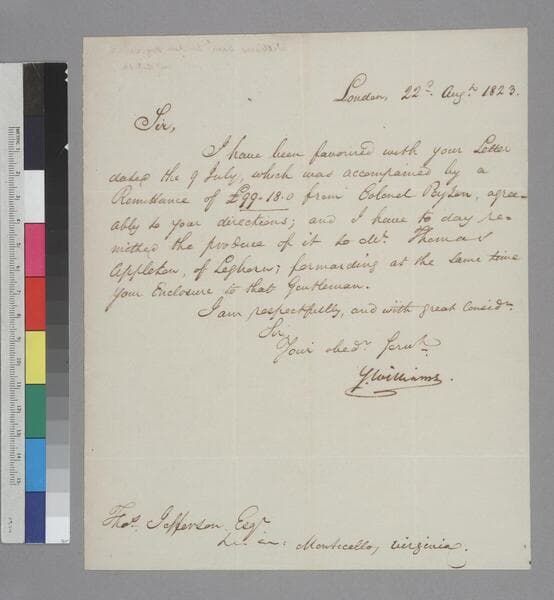 London, 22d. Augt. 1823.
Sir,
I have been favoured with your Letter
dated the 9 July, which was accompanied by a
Remittance of £99-18.0 from Colonel agree=
ably to your directions; and I have to day re=
mitted the produce of it to Mr. Thomas
Appleton, of Leghorn; forwarding at the same time
your Enclosure to that Gentleman.
I am respectfully, and with great Considn.
Sir,
Your obedt. Servt.
Williams.
Thos. Jefferson Esqr.
Monticello, Virginia.